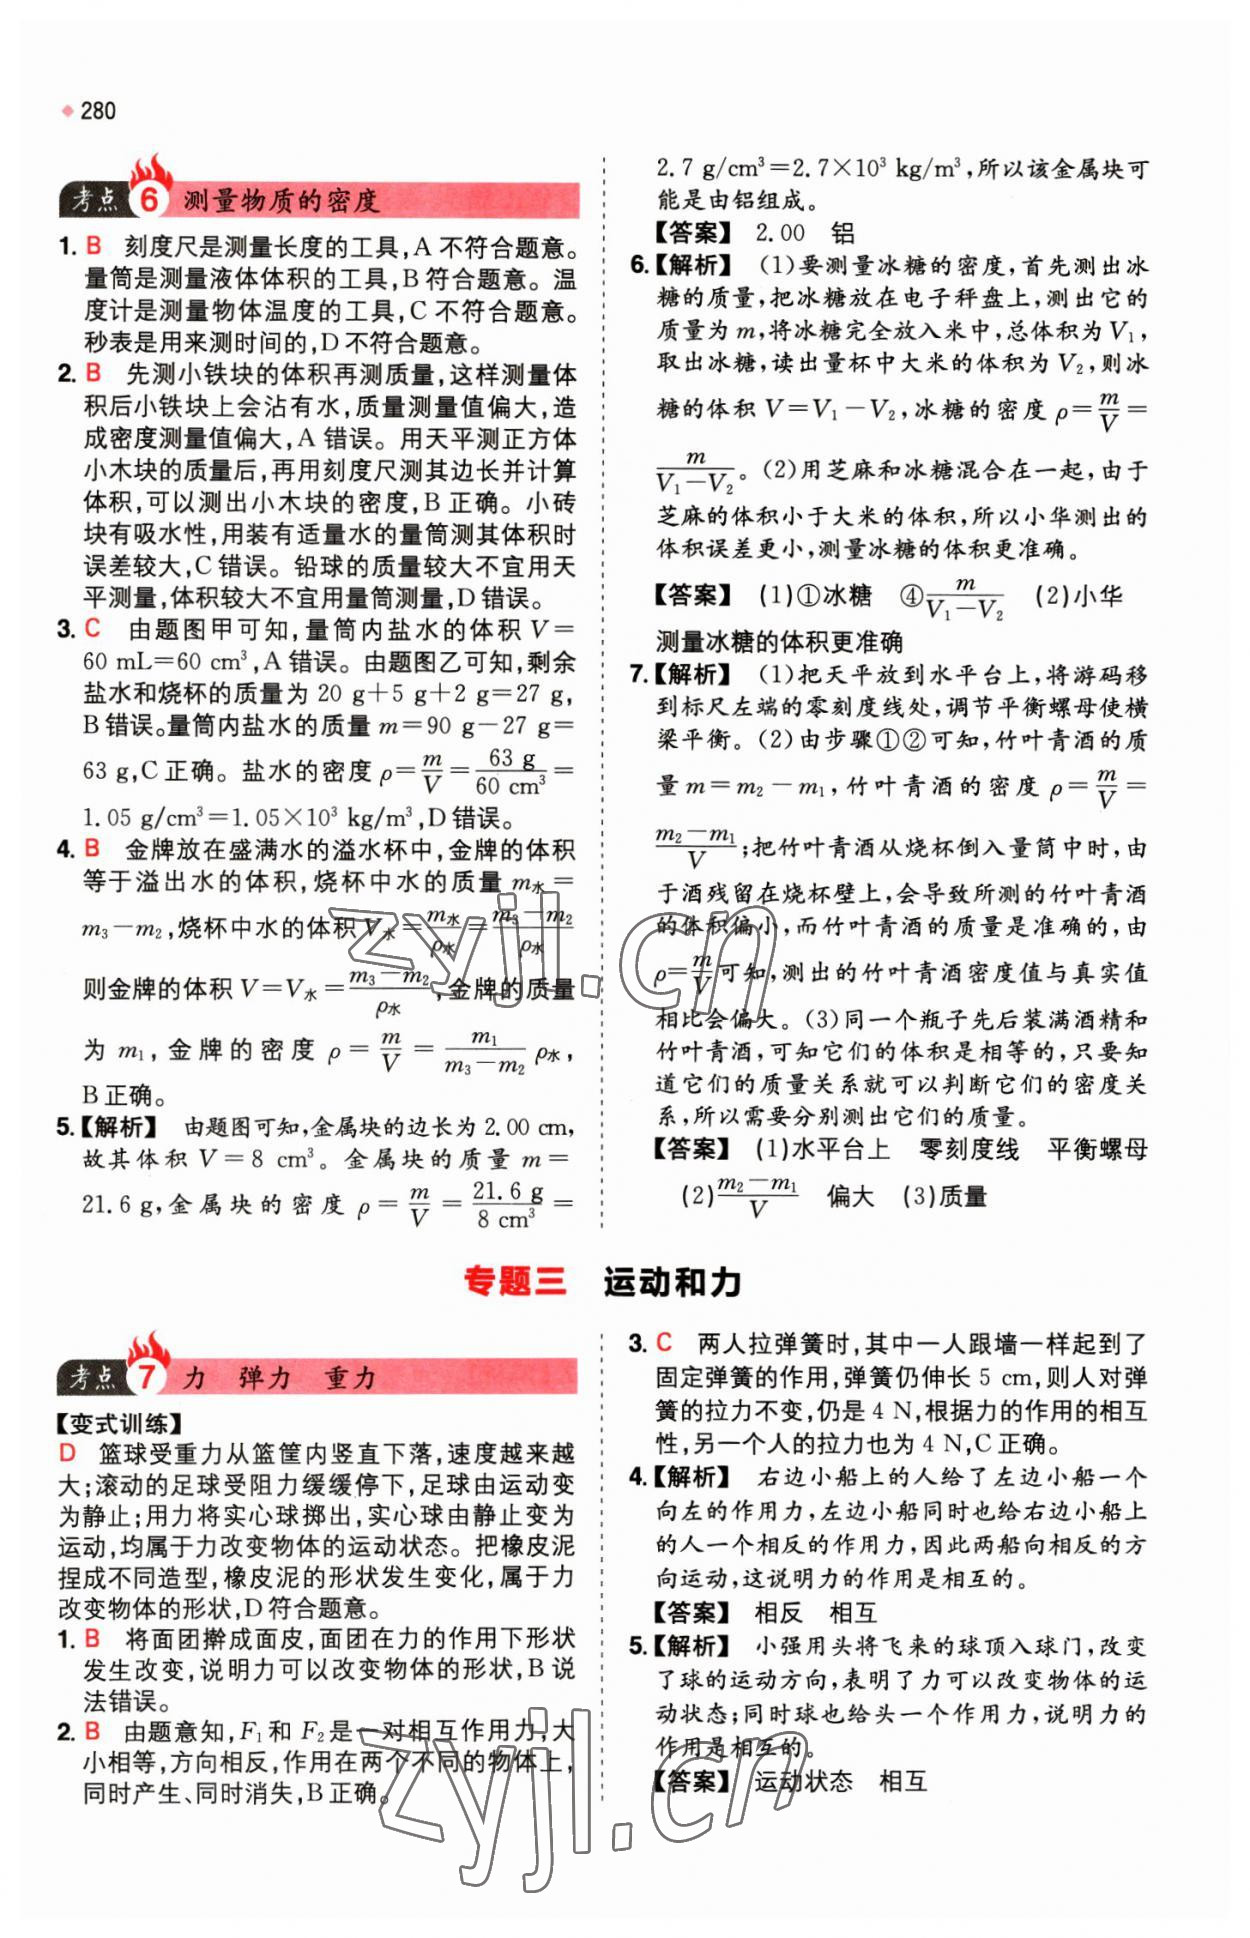 280
考点 6 测量物质的密度
1. B 刻度尺是测量长度的工具,A 不符合题意。
量筒是测量液体体积的工具,B 符合题意。温
度计是测量物体温度的工具,C 不符合题意。
秒表是用来测时间的,D 不符合题意。
2. B 先测小铁块的体积再测质量,这样测量体
积后小铁块上会沾有水,质量测量值偏大,造
成密度测量值偏大,A 错误。用天平测正方体
小木块的质量后,再用刻度尺测其边长并计算
体积,可以测出小木块的密度,B 正确。小砖
块有吸水性,用装有适量水的量筒测其体积时
误差较大,C 错误。铅球的质量较大不宜用天
平测量,体积较大不宜用量筒测量,D 错误。
3. C 由题图甲可知,量筒内盐水的体积 V=
60 mL=60 cm³,A 错误。由题图乙可知,剩余
盐水和烧杯的质量为 20 g+5 g+2 g=27 g,
B 错误。量筒内盐水的质量 m=90 g-27 g=
63 g,C 正确。盐水的密度 ρ=m/V=63 g/60 cm³=
1.05 g/cm³=1.05×10³ kg/m³,D 错误。
4. B 金牌放在盛满水的溢水杯中,金牌的体积
等于溢出水的体积,烧杯中水的质量 m水=
m₃-m₂,烧杯中水的体积 V水=m水/ρ水=(m₃-m₂)/ρ水
则金牌的体积 V=V水=(m₃-m₂)/ρ水,金牌的质量
为 m₁,金牌的密度 ρ=m/V=m₁/(m₃-m₂)ρ水,
B 正确。
5.【解析】 由题图可知,金属块的边长为 2.00 cm,
故其体积 V=8 cm³。金属块的质量 m=
21.6 g,金属块的密度 ρ=m/V=21.6 g/8 cm³=
2.7 g/cm³=2.7×10³ kg/m³,所以该金属块可
能是由铝组成。
【答案】 2.00 铝
6.【解析】 (1)要测量冰糖的密度,首先测出冰
糖的质量,把冰糖放在电子秤盘上,测出它的
质量为 m,将冰糖完全放入米中,总体积为 V₁,
取出冰糖,读出量杯中大米的体积为 V₂,则冰
糖的体积 V=V₁-V₂,冰糖的密度 ρ=m/V=
m/(V₁-V₂)。(2)用芝麻和冰糖混合在一起,由于
芝麻的体积小于大米的体积,所以小华测出的
体积误差更小,测量冰糖的体积更准确。
【答案】 (1)①冰糖 ④m/(V₁-V₂) (2)小华
测量冰糖的体积更准确
7.【解析】 (1)把天平放到水平台上,将游码移
到标尺左端的零刻度线处,调节平衡螺母使横
梁平衡。(2)由步骤①②可知,竹叶青酒的质
量 m=m₂-m₁,竹叶青酒的密度 ρ=m/V=
(m₂-m₁)/V;把竹叶青酒从烧杯倒入量筒中时,由
于酒残留在烧杯壁上,会导致所测的竹叶青酒
的体积偏小,而竹叶青酒的质量是准确的,由
ρ=m/V可知,测出的竹叶青酒密度值与真实值
相比会偏大。(3)同一个瓶子先后装满酒精和
竹叶青酒,可知它们的体积是相等的,只要知
道它们的质量关系就可以判断它们的密度关
系,所以需要分别测出它们的质量。
【答案】 (1)水平台上 零刻度线 平衡螺母
(2)(m₂-m₁)/V 偏大 (3)质量
专题三 运动和力
考点 7 力 弹力 重力
【变式训练】
D 篮球受重力从篮筐内竖直下落,速度越来越
大;滚动的足球受阻力缓缓停下,足球由运动变
为静止;用力将实心球掷出,实心球由静止变为
运动,均属于力改变物体的运动状态。把橡皮泥
捏成不同造型,橡皮泥的形状发生变化,属于力
改变物体的形状,D 符合题意。
1. B 将面团擀成面皮,面团在力的作用下形状
发生改变,说明力可以改变物体的形状,B 说
法错误。
2. B 由题意知,F₁和 F₂是一对相互作用力,大
小相等,方向相反,作用在两个不同的物体上,
同时产生、同时消失,B 正确。
3. C 两人拉弹簧时,其中一人跟墙一样起到了
固定弹簧的作用,弹簧仍伸长 5 cm,则人对弹
簧的拉力不变,仍是 4 N,根据力的作用的相互
性,另一个人的拉力也为 4 N,C 正确。
4.【解析】 右边小船上的人给了左边小船一个
向左的作用力,左边小船同时也给右边小船上
的人一个相反的作用力,因此两船向相反的方
向运动,这说明力的作用是相互的。
【答案】 相反 相互
5.【解析】 小强用头将飞来的球顶入球门,改变
了球的运动方向,表明了力可以改变物体的运
动状态;同时球也给头一个作用力,说明力的
作用是相互的。
【答案】 运动状态 相互
zyjl.cn
zyjl.cn